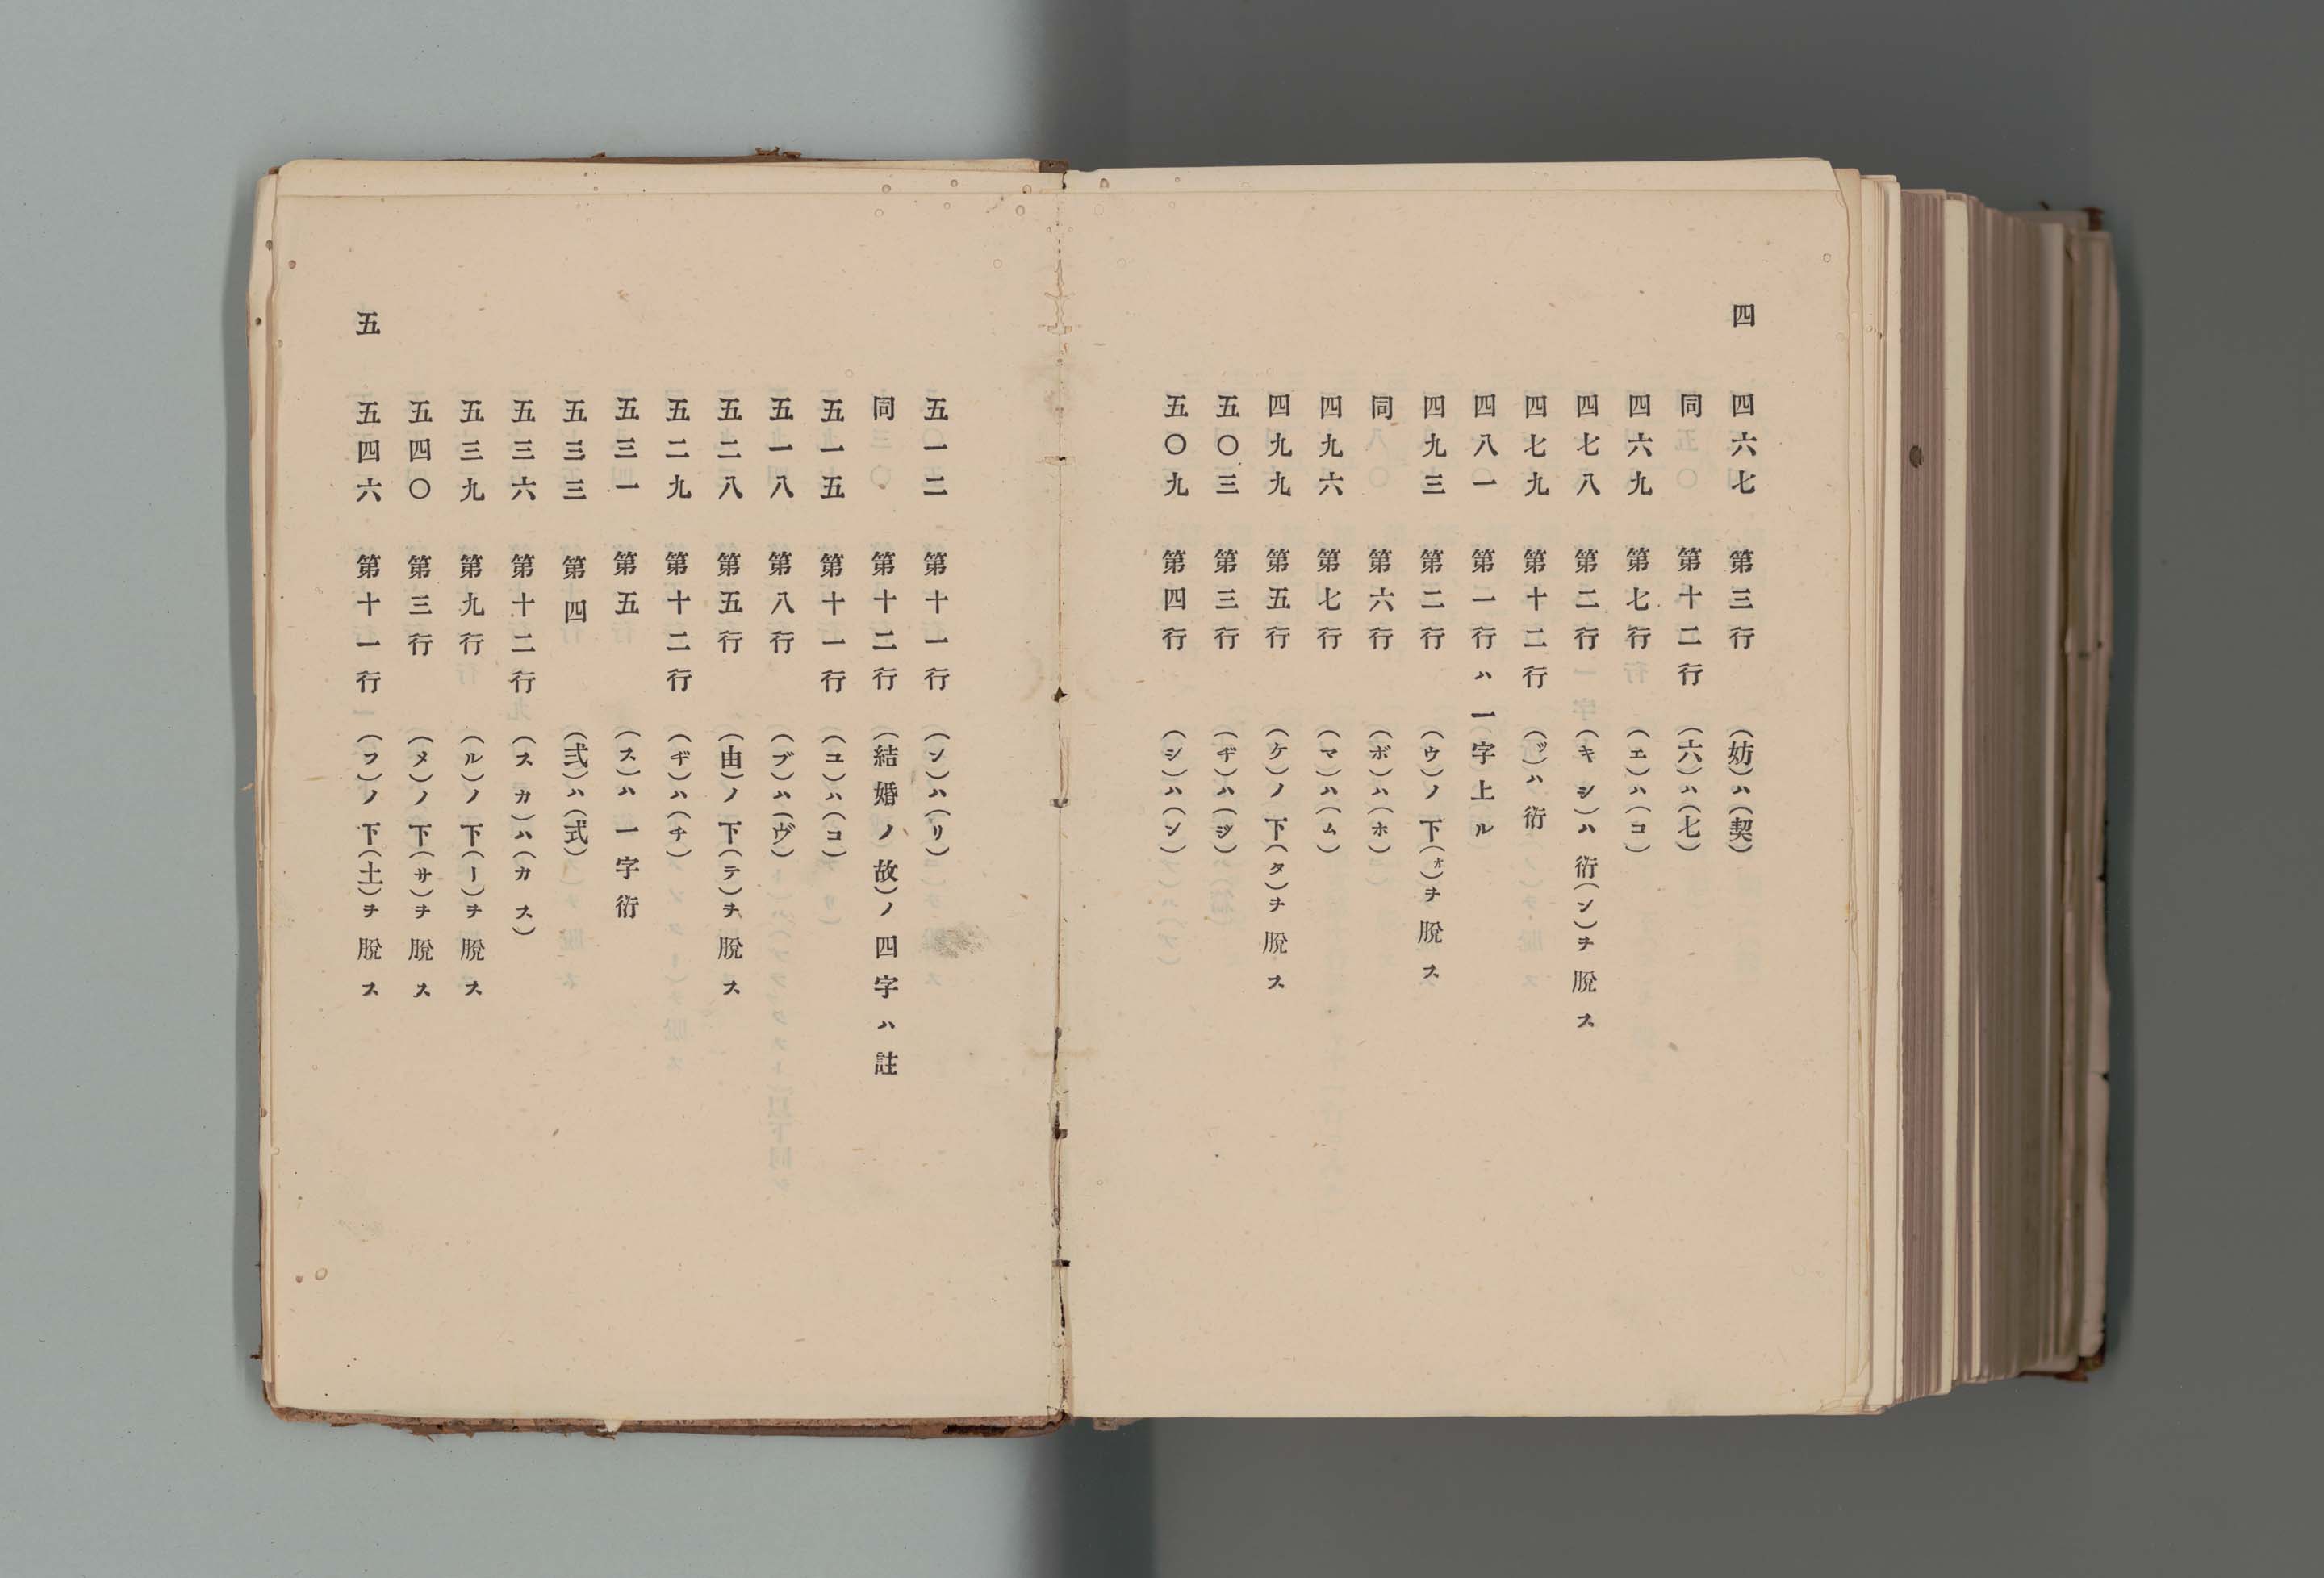 四
四六七 第三行 (妨)ハ(契)
同 第十二行 (六)ハ(七)
四六九 第七行 (エ)ハ(コ)
四七八 第二行 (キシ)ハ衍(ン)ヲ脫ス
四七九 第十二行 (ッ)ハ衍
四八一 第一行ハ一字上ル
四九三 第二行 (ウ)ノ下(オ)ヲ脫ス
同 第六行 (ボ)ハ(ホ)
四九六 第七行 (マ)ハ(ム)
四九九 第五行 (ケ)ノ下(タ)ヲ脫ス
五〇三 第三行 (ヂ)ハ(ジ)
五〇九 第四行 (シ)ハ(ン)
五一二 第十一行 (ン)ハ(リ)
同 第十二行 (結婚ノ故)ノ四字ハ註
五一五 第十一行 (ユ)ハ(コ)
五一八 第八行 (ブ)ハ(ヴ)
五二八 第五行 (由)ノ下(テ)ヲ脫ス
五二九 第十二行 (ヂ)ハ(チ)
五三一 第五 (ス)ハ一字衍
五三三 第四 (弐)ハ(式)
五三六 第十二行 (スカ)ハ(カス)
五三九 第九行 (ル)ノ下(ー)ヲ脫ス
五四〇 第三行 (メ)ノ下(サ)ヲ脫ス
五四六 第十一行 (フ)ノ下(土)ヲ脫ス
五